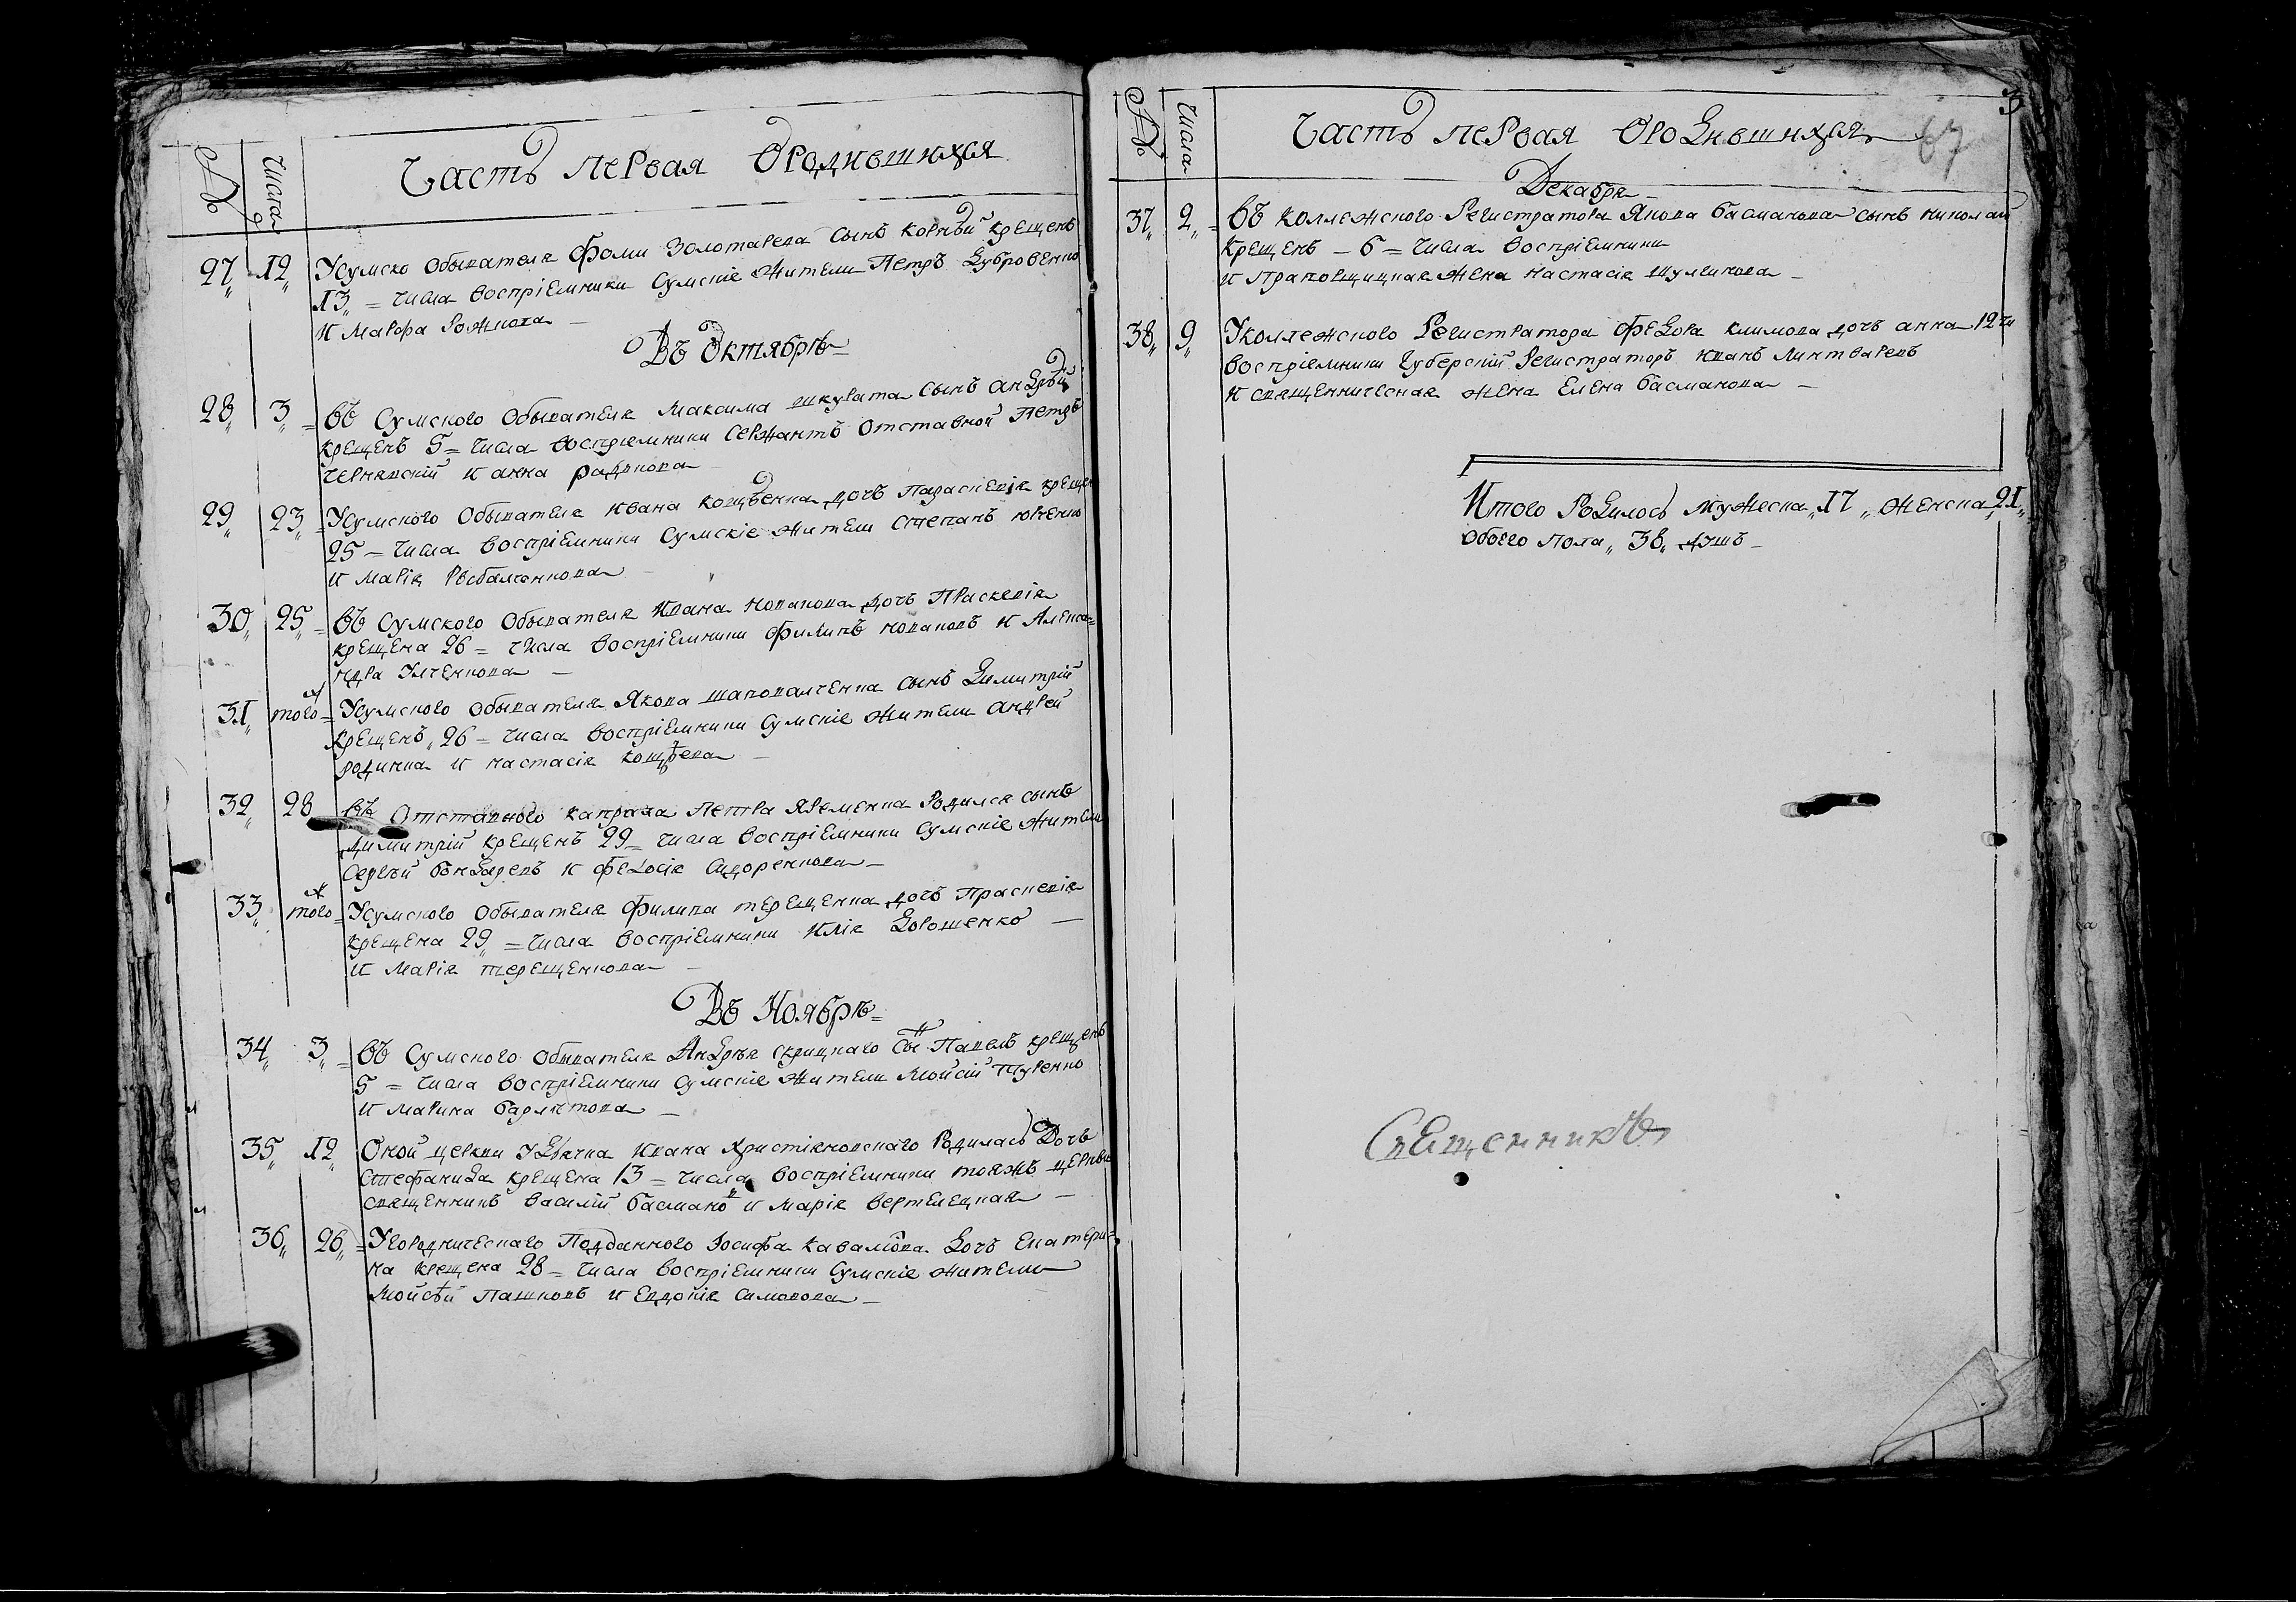 №
Числа
Часть первая Ородившихся
27 12 Усумско Обывателя Фомы Золотарева сынъ Корнѣй крещенъ
13 = числа воспріемники Сумскіе жители Петръ Дубровенко
И Марфа Рожнова
Въ Октябрѣ
28 3 въ Сумского Обывателя Максима шкурата сынъ андрѣй
крещенъ 5 = числа воспріемники Сержантъ Отставной Петръ
Чернявскій и анна
29 23 Усумского Обывателя Ивана дочь Параскевія крещен
25 = числа воспріемники Сумскіе жители Степанъ Юрченко
И Марія Рыбалченкова
30 25 въ Сумского Обывателя Ивана новакова дочь Праскевія
крещена 26 = числа воспріемники Филипъ новаковъ и Алекса=
ндра Улченкова
31 того Усумского Обывателя Якова шаповалченка сынъ Димитрій
крещенъ 26 = числа воспріемники Сумскіе жители андрей
родинка и настасія
32 28 въ Отставного капрала Петра Яременка Родился сынъ
Димитрій крещенъ 29 = числа воспріемники Сумскіе жители
Сергѣй бондаревъ и Федосія Сидоренкова
33 того Усумского Обывателя Филипа терещенка дочь Праскевія
крещена 29 = числа воспріемники Илія Дорошенко
И Марія терещенкова
Въ Ноябрѣ
34 3 въ Сумского Обывателя Андрѣя скрицкаго Сы Павелъ крещенъ
5 = числа воспріемники Сумскіе жители Мойсій Туренко
И Марина
35 12 Оной церкви Удьячка Ивана Христіановскаго Родилась Дочь
Стефанида крещена 13 = числа воспріемники тояжъ церкви
священникъ Василій басмано и Марія вертелецкая
36 26 Подданного Іосифа Ковалюва Дочь Екатери=
на крещена 28 = числа воспріемники Сумскіе жители
Мойсѣй Пашковъ и Евдокія Симовова
№
Числа
Часть первая Ородившихся
3
67
Декабря
37 2 въ коллежского Регистратора Якова басманова сынъ николай
крещенъ - 6 = числа воспріемники
И Прапорщицкая жена настасія шуликова
38 9 Уколлежского Регистратора Федора климова дочь анна 12 чи
воспріемники Губерский Регистраторъ Иванъ Линтваревъ
И священническая жена Елена басманова
Итого Родилось мужеска 17 женска 21
Обоего пола 38 душъ
Священникъ